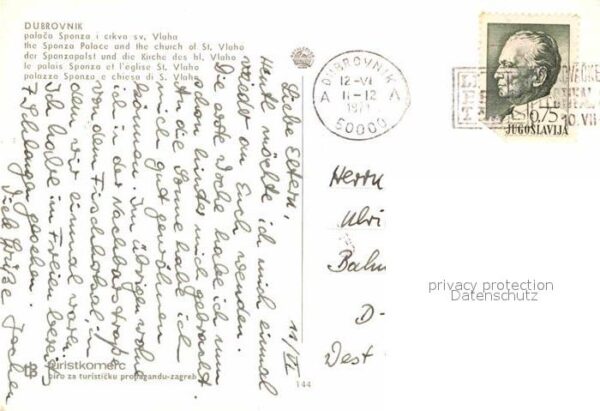 DUBROVNIK
palača Sponza i crkva sv. Vlaha
the Sponza Palace and the church of St. Vlaho
der Spanzapalst und die Kirche des hl. Vlaho
le palais Sponza et l'église St. Vlaho
palazzo Sponza e chiesa di S. Vlaho
11/VI
Liebe Eltern,
Heute möchte ich mich einmal
wieder an Euch wenden.
Die erste Woche habe ich nun
schon hinter mich gebracht.
An die Sonne habe ich
mich gut gewöhnen
können. Im übrigen wohne
ich in der Nachbarstraße
von dem
dem wir einmal waren.
Ich habe im Freien bereits
7 Schlangen gesehen.
Viele Grüße Jochen
turistkomerc
biro za turističku propagandu-zagreb
144
DUBROVNIK
12-VI
11-12
A A
50000
6/75
JUGOSLAVIJA
10.VII
Herrn
Ulri
Bahn
D-
West
privacy protection
Datenschutz